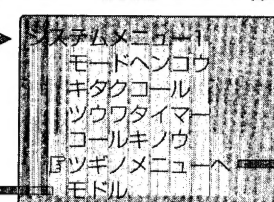 システムメニュー1
モードヘンコウ
キタクコール
ツウワタイマー
コールキノウ
☞ツギノメニューへ
モドル